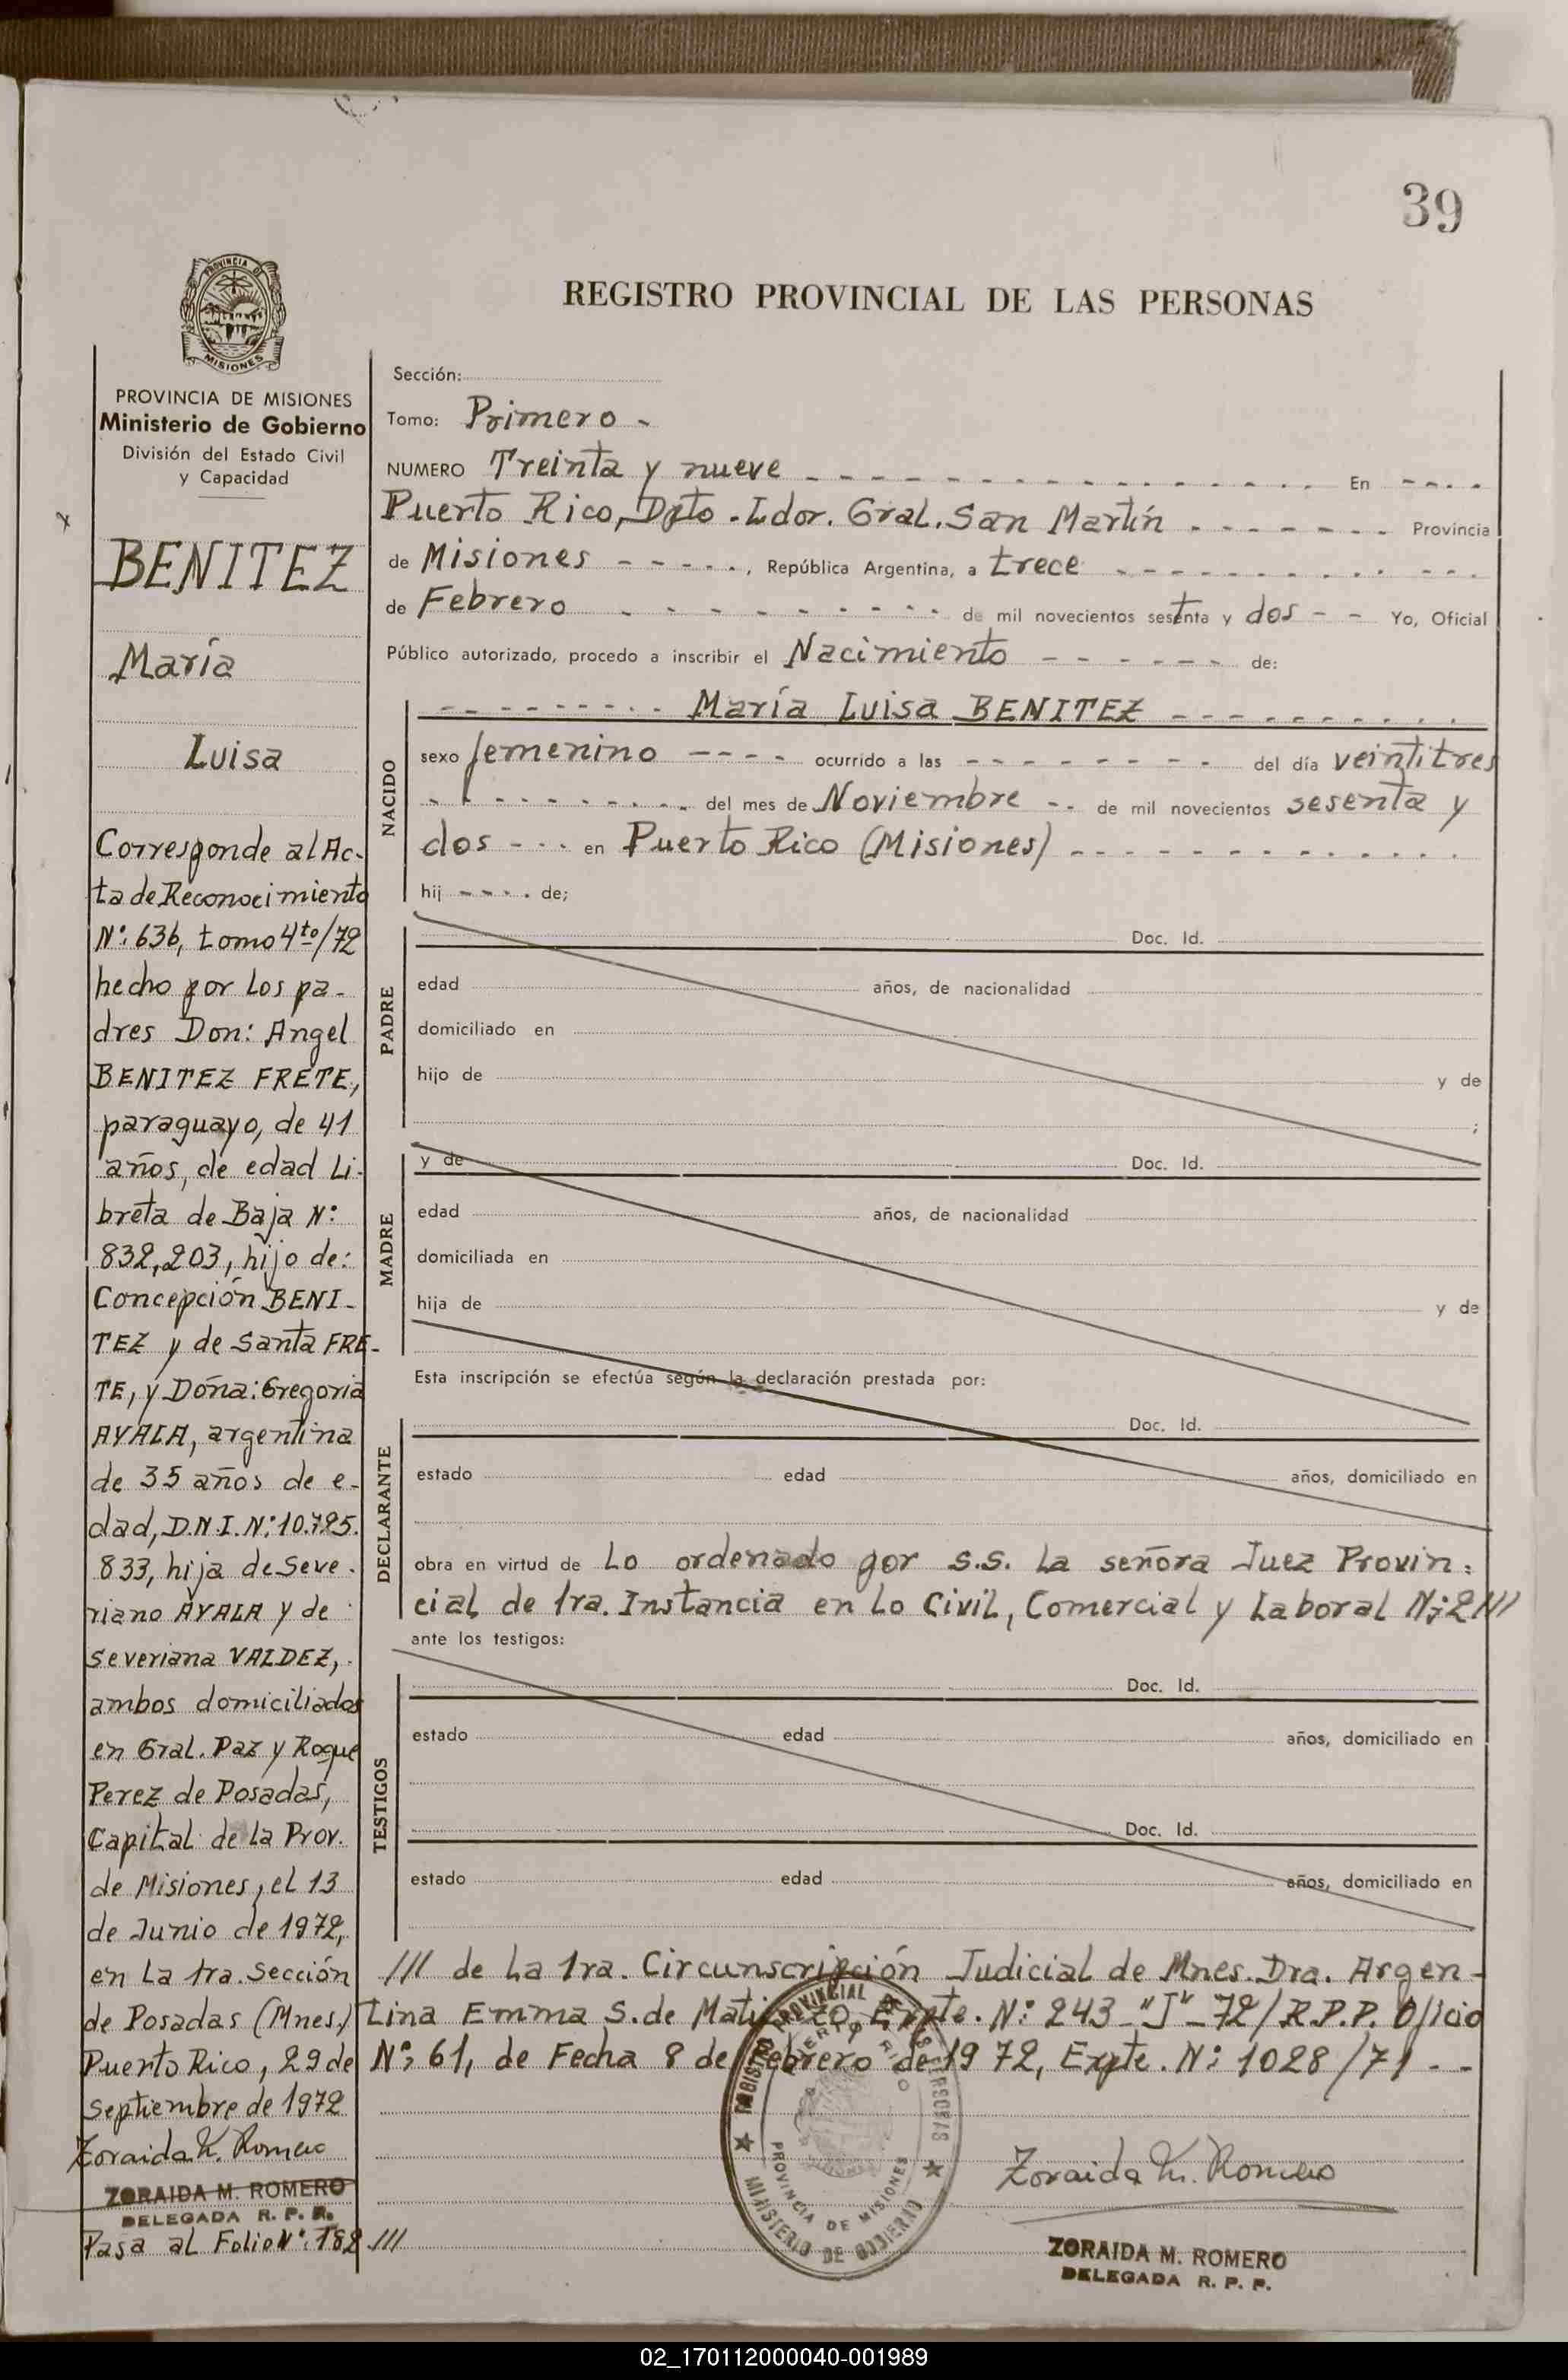 39
PROVINCIA DE
MISIONES
REGISTRO PROVINCIAL DE LAS PERSONAS
PROVINCIA DE MISIONES
Ministerio de Gobierno
División del Estado Civil
y Capacidad
BENITEZ
María
Luisa
Corresponde al Ac-
ta de Reconocimiento
N°: 636, tomo 4to/72
hecho por los pa-
dres Don: Angel
BENITEZ FRETE,
paraguayo, de 41
años, de edad Li-
breta de Baja N°:
832,203, hijo de:
Concepción BENI-
TEZ y de Santa FRE-
TE, y Doña: Gregoria
AYALA, argentina
de 35 años de e-
dad, D.N.I. N°: 10.795.
833, hija de Seve-
riano AYALA y de
Severiana VALDEZ,
ambos domiciliados
en Gral. Paz y Roque
Perez de Posadas,
Capital de la Prov.
de Misiones, el 13
de Junio de 1972,
en la 1ra. Sección
de Posadas (Mnes.)
Puerto Rico, 29 de
septiembre de 1972
Zoraida M. Romero
ZORAIDA M. ROMERO
DELEGADA R. P. P.
Pasa al Folio N°: 182 ///
Sección:
Tomo: Primero -
NUMERO Treinta y nueve - - - En - - - -
Puerto Rico, Dpto. Ldor. Gral. San Martín - - - Provincia
de Misiones - - - , República Argentina, a trece - - -
de Febrero - - - de mil novecientos sesenta y dos - - Yo, Oficial
Público autorizado, procedo a inscribir el Nacimiento - - - de:
- - - María Luisa BENITEZ - - -
NACIDO
sexo femenino - - - - ocurrido a las - - - del día veintitres
- - - del mes de Noviembre - - de mil novecientos sesenta y
dos - - - en Puerto Rico (Misiones) - - -
hij - - - - de;
PADRE
Doc. Id.
edad años, de nacionalidad
domiciliado en
hijo de y de
;
MADRE
y de Doc. Id.
edad años, de nacionalidad
domiciliada en
hija de y de
Esta inscripción se efectúa según la declaración prestada por:
DECLARANTE
Doc. Id.
estado edad años, domiciliado en
obra en virtud de Lo ordenado por S.S. la señora Juez Provin-
cial de 1ra. Instancia en lo Civil, Comercial y Laboral N°: 2 ///
ante los testigos:
TESTIGOS
Doc. Id.
estado edad años, domiciliado en
Doc. Id.
estado edad años, domiciliado en
/// de la 1ra. Circunscripción Judicial de Mnes. Dra. Argen-
tina Emma S. de Expte. N°: 243 - "J" - 72/R.P.P. Oficio
N°: 61, de Fecha 8 de Febrero de 1972, Expte. N°: 1028/71 - -
PUERTO RICO
PROVINCIA DE MISIONES
MINISTERIO DE GOBIERNO
Zoraida M. Romero
ZORAIDA M. ROMERO
DELEGADA R. P. P.
02_170112000040-001989